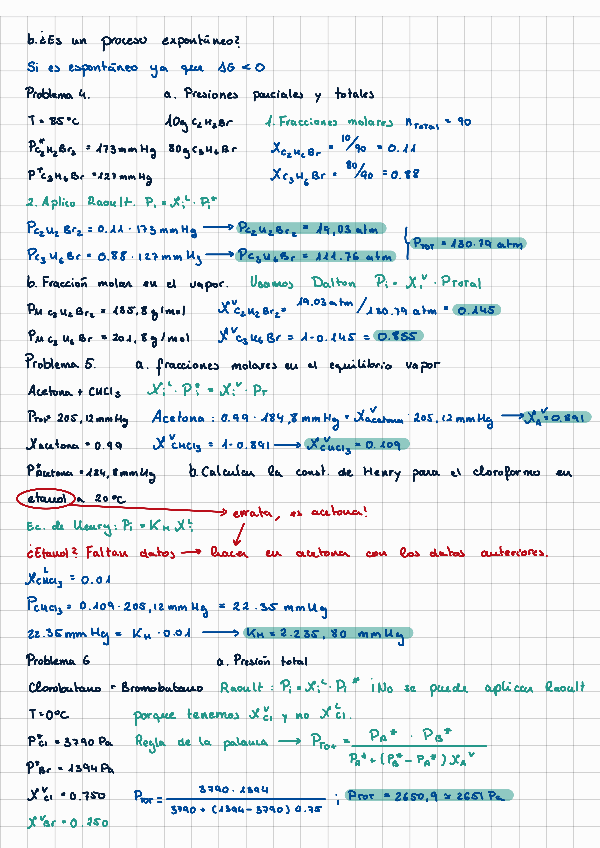 b. ¿Es un proceso expontáneo?
Si es espontáneo ya que ΔG < 0
Problema 4. a. Presiones parciales y totales
T = 85°C 10g C₂H₂Br 1. Fracciones molares n_Total = 90
P*C₂H₂Br₂ = 173 mmHg 80g C₃H₆Br X_C₂H₂Br = 10/90 = 0.11
P*C₃H₆Br = 127 mmHg X_C₃H₆Br = 80/90 = 0.88
2. Aplico Raoult. Pᵢ = Xᵢᴸ · Pᵢ*
P_C₂H₂Br₂ = 0.11 · 173 mmHg → P_C₂H₂Br₂ = 19,03 atm
P_TOT = 130.79 atm
P_C₃H₆Br = 0.88 · 127 mmHg → P_C₃H₆Br = 111.76 atm
b. Fracción molar en el vapor. Usamos Dalton Pᵢ = Xᵢⱽ · P_Total
P_M C₂H₂Br₂ = 185,8 g/mol Xⱽ C₂H₂Br₂ = 19.03 atm / 130.79 atm = 0.145
P_M C₃H₆Br = 201,8 g/mol Xⱽ C₃H₆Br = 1 - 0.145 = 0.855
Problema 5. a. fracciones molares en el equilibrio vapor
Acetona + CHCl₃ Xᵢᴸ · Pᵢ* = Xᵢⱽ · P_T
P_tot = 205,12 mmHg Acetona : 0.99 · 184,8 mmHg = Xⱽacetona · 205,12 mmHg → X_Aⱽ = 0.891
Xacetona = 0.99 Xⱽ CHCl₃ = 1 - 0.891 → Xⱽ CHCl₃ = 0.109
P*acetona = 184,8 mmHg b. Calcular la const. de Henry para el cloroformo en
etanol a 20°C
→ errata, es acetona!
Ec. de Henry: Pᵢ = K_H Xᵢᴸ
¿Etanol? Faltan datos → hacer en acetona con los datos anteriores.
Xᴸ CHCl₃ = 0.01
P_CHCl₃ = 0.109 · 205,12 mmHg = 22.35 mmHg
22.35 mmHg = K_H · 0.01 → K_H = 2.235,80 mmHg
Problema 6 a. Presión total
Clorobutano = Bromobutano Raoult : Pᵢ = Xᵢᴸ · Pᵢ* ¡No se puede aplicar Raoult
T = 0°C porque tenemos Xⱽ_Cl y no Xᴸ_Cl.
P*_Cl = 3790 Pa Regla de la palanca → P_Tot = P_A* · P_B* / P_A* + (P_B* - P_A*) X_Aⱽ
P*_Br = 1394 Pa
Xⱽ_Cl = 0.750 P_TOT = 3790 · 1394 / 3790 + (1394 - 3790) 0.75 ; P_TOT = 2650,9 ≈ 2651 Pa
Xⱽ_Br = 0.250